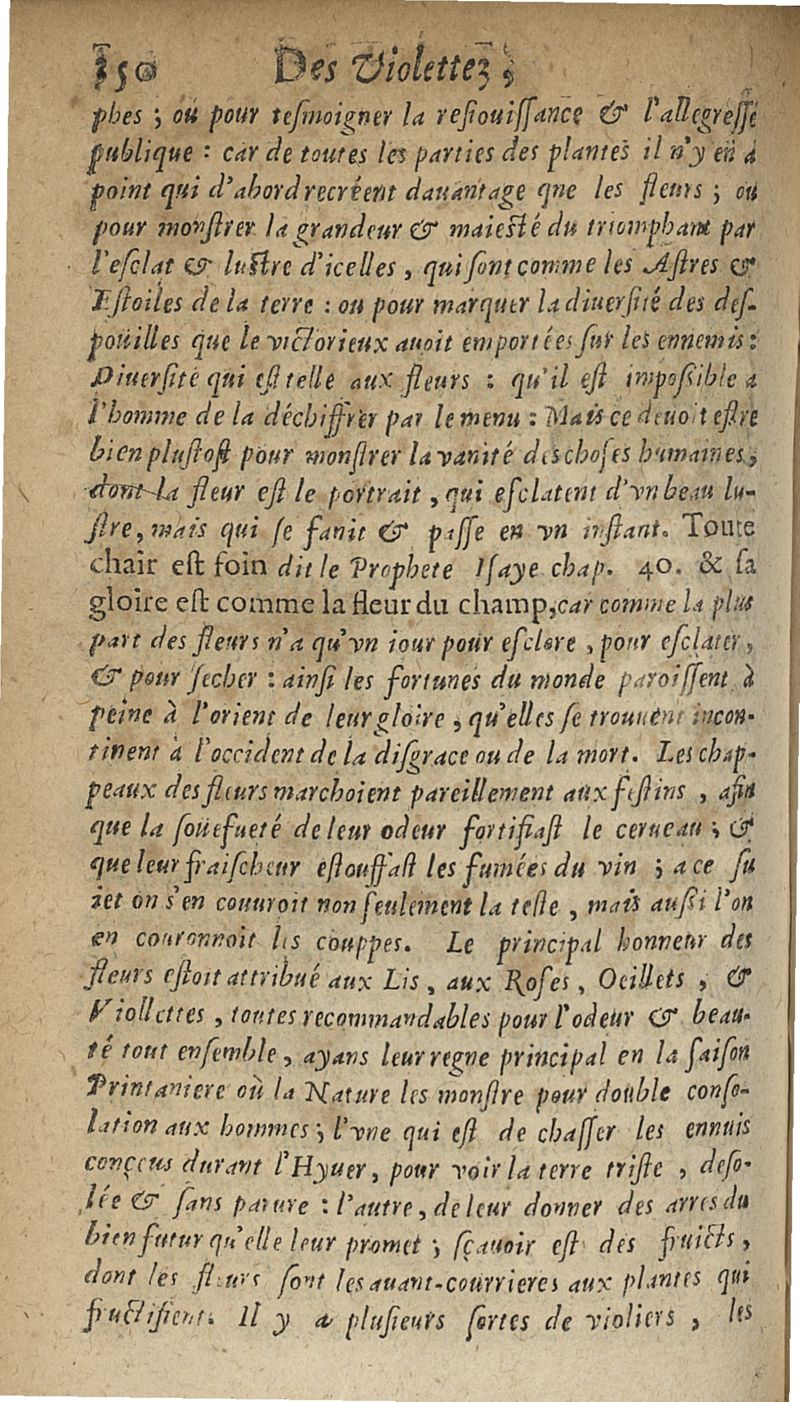 350 Des Violettez,
phes ; ou pour teſmoigner la reſiouiſſance & l'allegreſſe
publique : car de toutes les parties des plantes il n'y en a
point qui d'abord recréent dauantage que les fleurs ; ou
pour monſtrer la grandeur & maieſté du triomphant par
l'eſclat & luſtre d'icelles, qui ſont comme les Aſtres &
Eſtoiles de la terre : ou pour marquer la diuerſité des deſ-
poüilles que le victorieux auoit emportées ſur les ennemis :
Diuerſité qui eſt telle aux fleurs : qu'il eſt impoſſible a
l'homme de la déchiffrer par le menu : Mais ce deuoit eſtre
bien pluſtoſt pour monſtrer la vanité des choſes humaines,
dont la fleur eſt le portrait, qui eſclatent d'vn beau lu-
ſtre, mais qui ſe fanit & paſſe en vn inſtant. Toute
chair eſt foin dit le Prophete Iſaye chap. 40. & ſa
gloire eſt comme la fleur du champ, car comme la plus
part des fleurs n'a qu'vn iour pour eſclore, pour eſclater,
& pour ſecher : ainſi les fortunes du monde paroiſſent à
peine à l'orient de leur gloire, qu'elles ſe trouuent incon-
tinent à l'occident de la diſgrace ou de la mort. Les chap-
peaux des fleurs marchoient pareillement aux feſtins, afin
que la ſouefueté de leur odeur fortifiaſt le cerueau ; &
que leur fraiſcheur eſtouffaſt les fumées du vin ; a ce ſu
iet on s'en couuroit non ſeulement la teſte, mais auſſi l'on
en couronnoit les couppes. Le principal honneur des
fleurs eſtoit attribué aux Lis, aux Roſes, Oeillets, &
Viollettes, toutes recommandables pour l'odeur & beau-
té tout enſemble, ayans leur regne principal en la ſaiſon
Printaniere où la Nature les monſtre pour double conſo-
lation aux hommes ; l'vne qui eſt de chaſſer les ennuis
conçeus durant l'Hyuer, pour voir la terre triſte, deſo-
lée & ſans parure : l'autre, de leur donner des arres du
bien futur qu'elle leur promet ; ſçauoir eſt des fruicts,
dont les fleurs ſont les auant-courrieres aux plantes qui
fructifient. Il y a pluſieurs ſortes de violiers, les